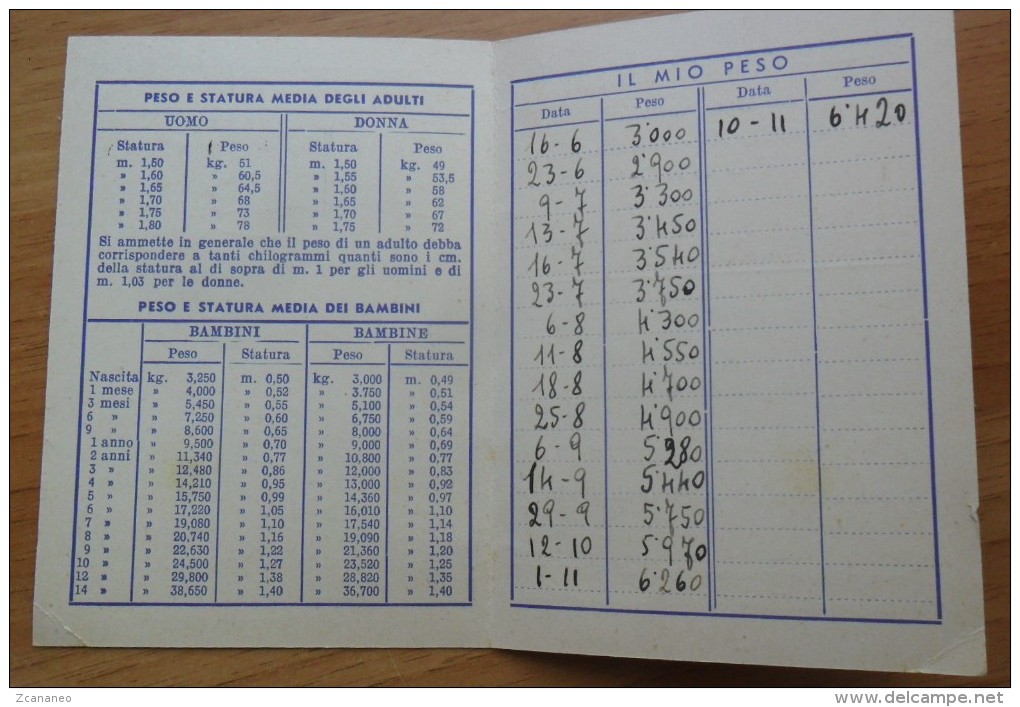 PESO E STATURA MEDIA DEGLI ADULTI
UOMO DONNA
Statura Peso Statura Peso
m. 1,50 kg. 51 m. 1,50 kg. 49
» 1,60 » 60,5 » 1,55 » 53,5
» 1,65 » 64,5 » 1,50 » 58
» 1,70 » 68 » 1,65 » 62
» 1,75 » 73 » 1,70 » 67
» 1,80 » 78 » 1,75 » 72
Si ammette in generale che il peso di un adulto debba
corrispondere a tanti chilogrammi quanti sono i cm.
della statura al di sopra di m. 1 per gli uomini e di
m. 1,03 per le donne.
PESO E STATURA MEDIA DEI BAMBINI
BAMBINI BAMBINE
Peso Statura Peso Statura
Nascita kg. 3,250 m. 0,50 kg. 3,000 m. 0,49
1 mese » 4,000 » 0,52 » 3.750 » 0,51
3 mesi » 5,450 » 0,55 » 5,100 » 0,54
6 » » 7,250 » 0,60 » 6,750 » 0,59
9 » » 8,600 » 0,65 » 8,000 » 0,64
1 anno » 9,500 » 0,70 » 9,000 » 0,69
2 anni » 11,340 » 0,77 » 10,800 » 0,77
3 » » 12,480 » 0,86 » 12,000 » 0,83
4 » » 14,210 » 0,95 » 13,000 » 0,92
5 » » 15,750 » 0,99 » 14,360 » 0,97
6 » » 17,220 » 1,05 » 16,010 » 1,10
7 » » 19,080 » 1,10 » 17,540 » 1,14
8 » » 20,740 » 1,16 » 19,090 » 1,18
9 » » 22,630 » 1,22 » 21,360 » 1,20
10 » » 24,500 » 1,27 » 23,520 » 1,25
12 » » 29,800 » 1,38 » 28,820 » 1,35
14 » » 38,650 » 1,40 » 36,700 » 1,40
IL MIO PESO
Data Peso Data Peso
16-6 3'000 10-11 6'420
23-6 2'900
9-7 3'300
13-7 3'450
16-7 3'540
23-7 3'750
6-8 4'300
11-8 4'550
18-8 4'700
25-8 4'900
6-9 5'280
14-9 5'440
29-9 5'750
12-10 5'970
1-11 6'260
Zcananeo
www.delcampe.net